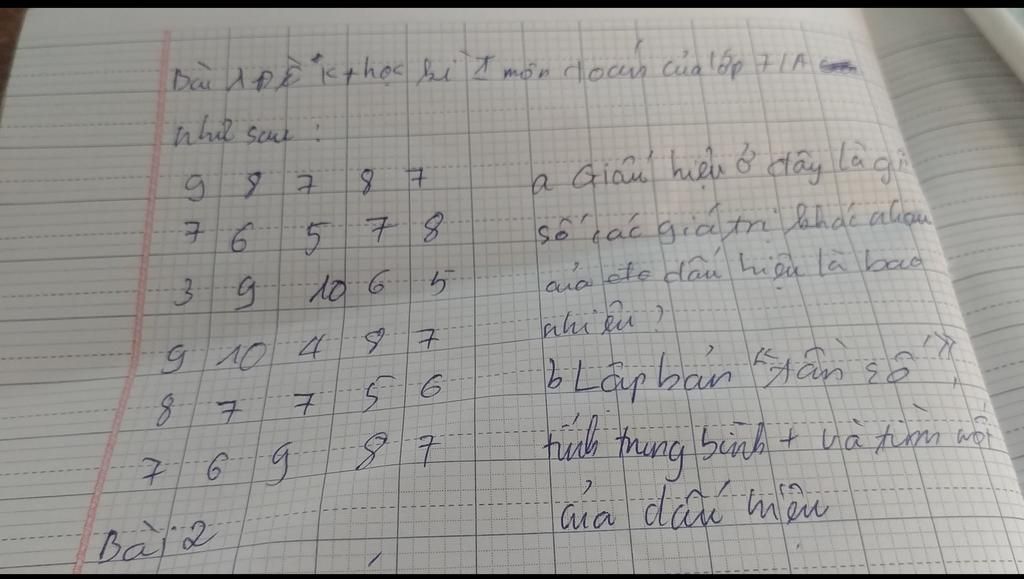 Bài 1 Đề K+ học kì I môn toán của lớp 71A
như sau:
9 8 7 8 7 a Giấu hiệu ở đây là gì
7 6 5 7 8 số các giá trị khác nhau
3 9 10 6 5 của dấu hiệu là bao
9 10 4 8 7 nhiêu?
8 7 7 5 6 b Lập bản "tần số",
7 6 9 8 7 tính trung bình + và tìm mốt
của dấu hiệu
Bài 2